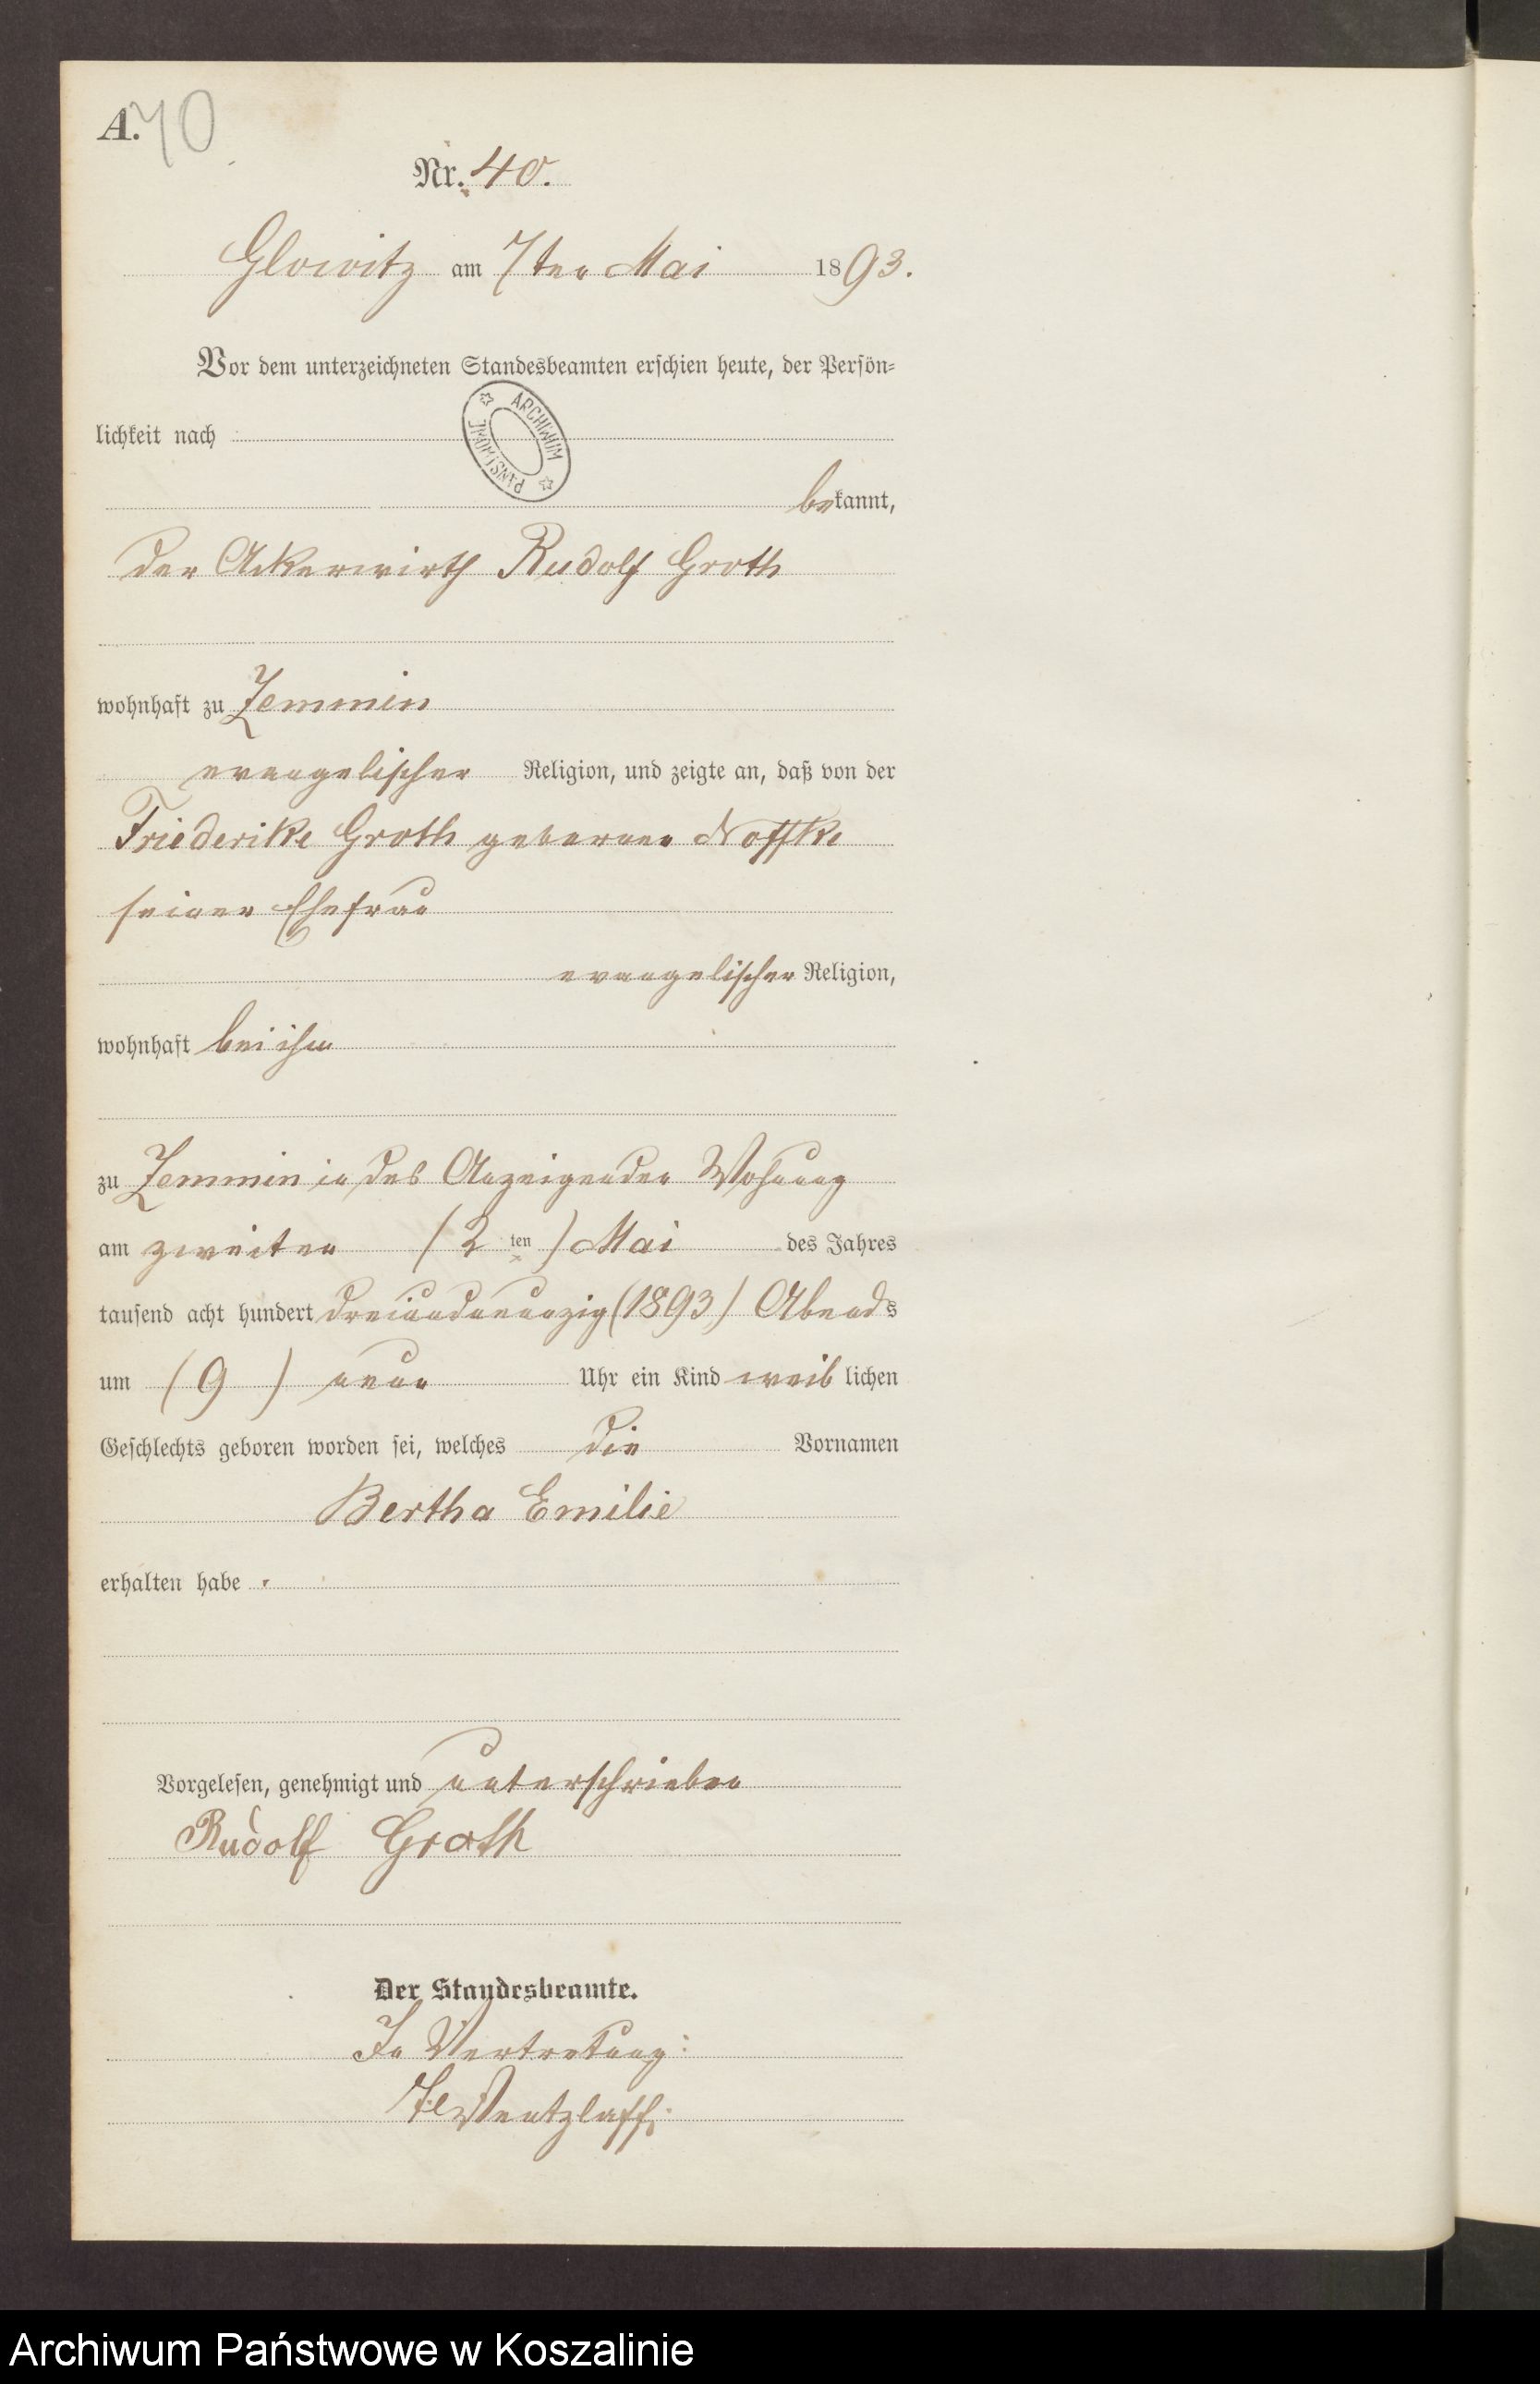 A. 40
Nr. 40.
Glowitz am 7ten Mai 1893.
Vor dem unterzeichneten Standesbeamten erschien heute, der Persön-
lichkeit nach
ARCHIWUM PAŃSTWOWE
bekannt,
der Ackerwirth Rudolf Groth
wohnhaft zu Zemmin
evangelischer Religion, und zeigte an, daß von der
Friederike Groth geborenen Noffke
seiner Ehefrau
evangelischer Religion,
wohnhaft bei ihm
zu Zemmin in des Anzeigenden Wohnung
am zweiten (2 ten) Mai des Jahres
tausend acht hundert dreiundneunzig (1893) Abends
um (9) neun Uhr ein Kind weiblichen
Geschlechts geboren worden sei, welches die Vornamen
Bertha Emilie
erhalten habe.
Vorgelesen, genehmigt und unterschrieben
Rudolf Groth
Der Standesbeamte.
In Vertretung:
Wentzlaff.
Archiwum Państwowe w Koszalinie